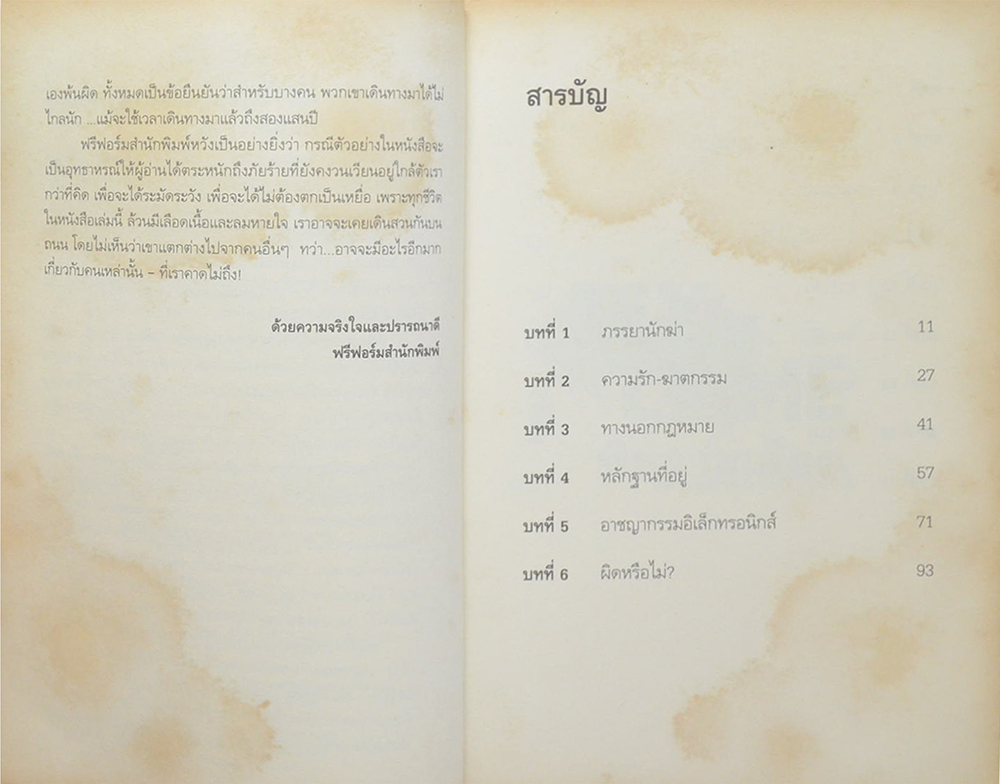 เองพ้นผิด ทั้งหมดเป็นข้อยืนยันว่าสำหรับบางคน พวกเขาเดินทางมาได้ไม่
ไกลนัก ...แม้จะใช้เวลาเดินทางมาแล้วถึงสองแสนปี
ฟรีฟอร์มสำนักพิมพ์หวังเป็นอย่างยิ่งว่า กรณีตัวอย่างในหนังสือจะ
เป็นอุทธาหรณ์ให้ผู้อ่านได้ตระหนักถึงภัยร้ายที่ยังคงวนเวียนอยู่ใกล้ตัวเรา
กว่าที่คิด เพื่อจะได้ระมัดระวัง เพื่อจะได้ไม่ต้องตกเป็นเหยื่อ เพราะทุกชีวิต
ในหนังสือเล่มนี้ ล้วนมีเลือดเนื้อและลมหายใจ เราอาจจะเคยเดินสวนกันบน
ถนน โดยไม่เห็นว่าเขาแตกต่างไปจากคนอื่นๆ ทว่า...อาจจะมีอะไรอีกมาก
เกี่ยวกับคนเหล่านั้น – ที่เราคาดไม่ถึง!
ด้วยความจริงใจและปรารถนาดี
ฟรีฟอร์มสำนักพิมพ์
สารบัญ
บทที่ 1 ภรรยานักฆ่า 11
บทที่ 2 ความรัก-ฆาตกรรม 27
บทที่ 3 ทางนอกกฎหมาย 41
บทที่ 4 หลักฐานที่อยู่ 57
บทที่ 5 อาชญากรรมอิเล็กทรอนิกส์ 71
บทที่ 6 ผิดหรือไม่? 93